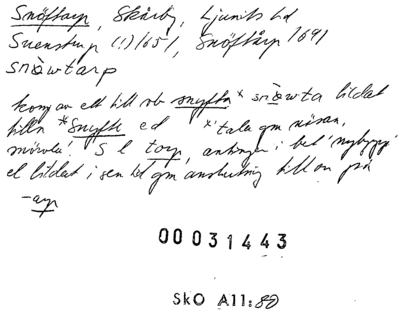 Snöftarp, Skårby, Ljunits hd
Svenstrup (!) 1651, Snöftårp 1691
snὰwtarp
komp av ett till vb snyfta * snὰwta bildat
tilln *Snyfte ed *'tala gm näsan,
snörvla'. S l torp, antingen i bet 'nybygge'
el bildat i sen tid gm anslutning till on på
-arp
00031443
SkO A11:80